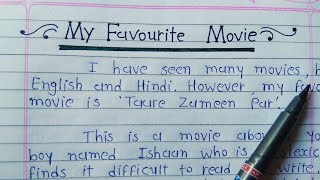 My Favourite Movie
I have seen many movies,
English and Hindi. However, my
movie is 'Taare Zameen Par'.
This is a movie about
boy named Ishaan who is
finds it difficult to read